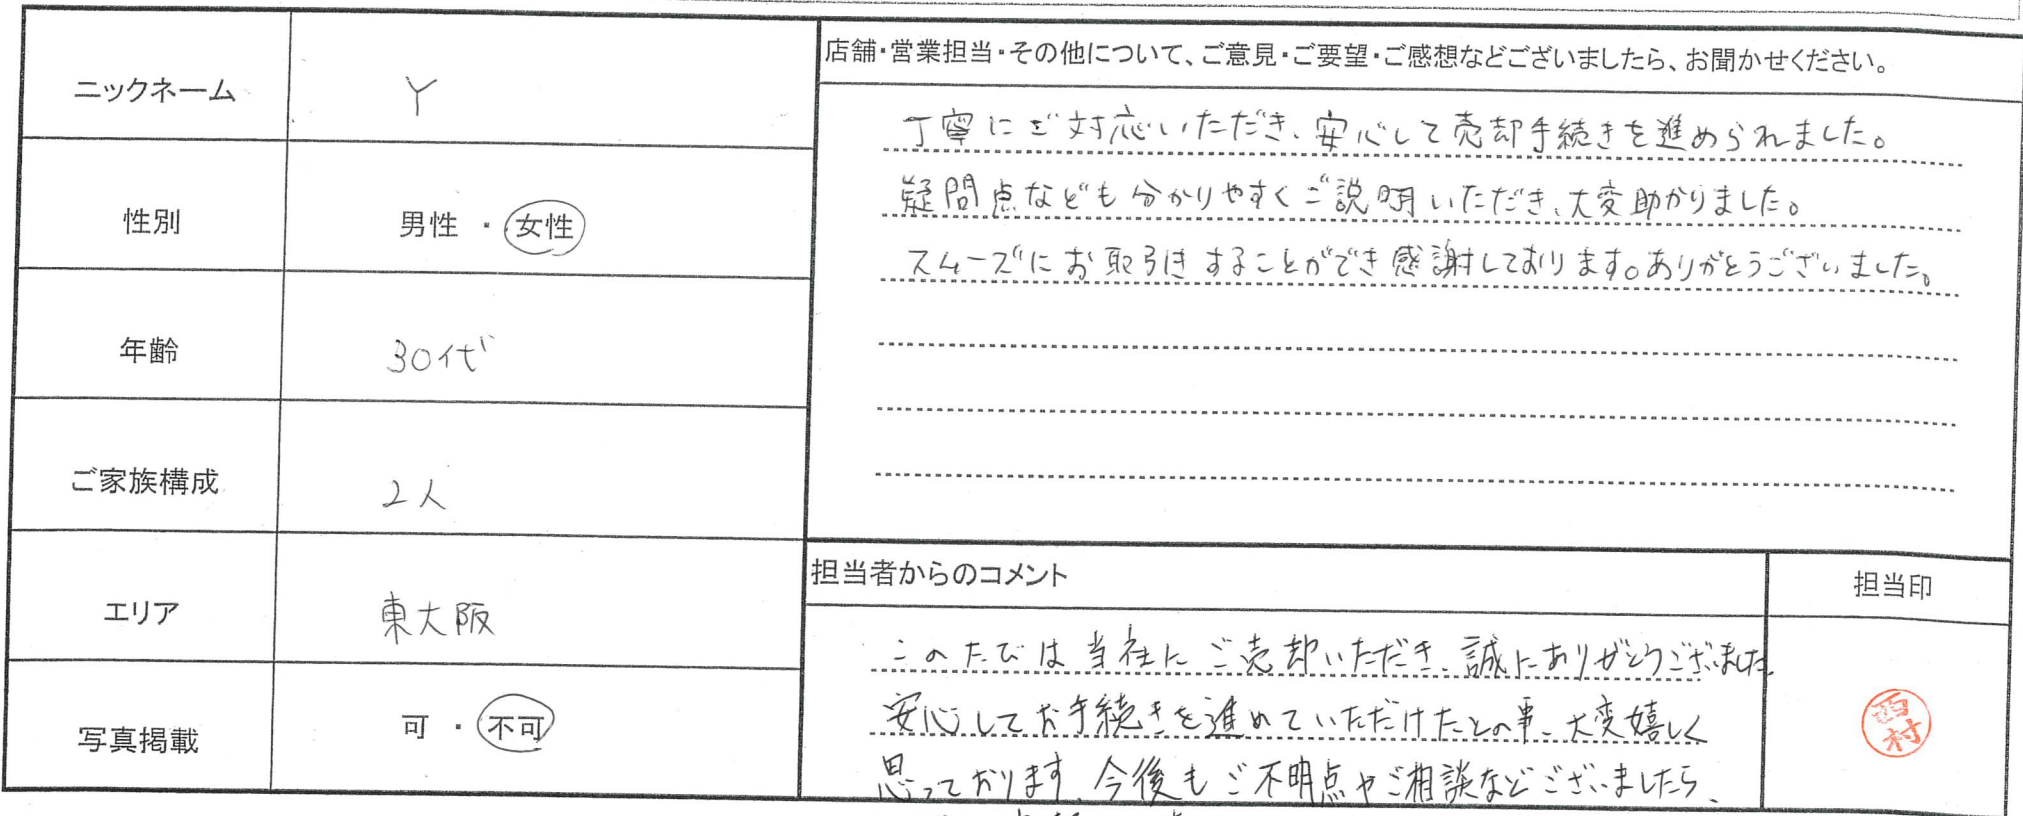 ニックネーム
Y
性別
男性 ・ 女性
年齢
30代
ご家族構成
2人
エリア
東大阪
写真掲載
可 ・ 不可
店舗・営業担当・その他について、ご意見・ご要望・ご感想などございましたら、お聞かせください。
丁寧にご対応いただき、安心して売却手続きを進められました。
疑問点なども分かりやすくご説明いただき、大変助かりました。
スムーズにお取引きすることができ感謝しております。ありがとうございました。
担当者からのコメント
このたびは当社にご売却いただき、誠にありがとうございました。
安心してお手続きを進めていただけたとの事、大変嬉しく
思っております。今後もご不明点やご相談などございましたら、
担当印
西村